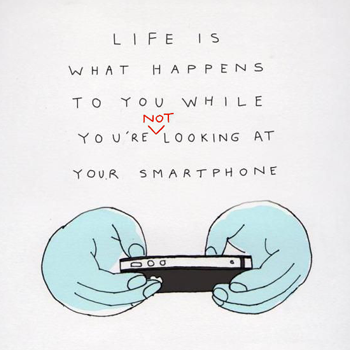 LIFE IS
WHAT HAPPENS
TO YOU WHILE
NOT
YOU'RE LOOKING AT
YOUR SMARTPHONE